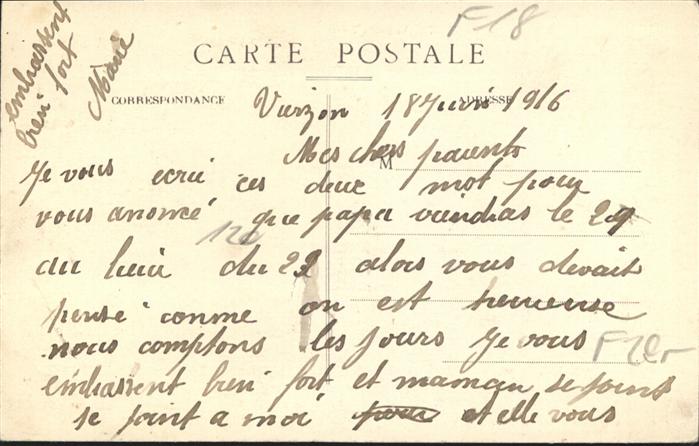 F18
CARTE POSTALE
CORRESPONDANCE
ADRESSE
Vierzon 18 Juin 1916
Mes chers parents
M
Je vous ecrie ces deux mot pour
vous anoncé que papa viendras le 29
au lieu du 23 alors vous devait
pensé comme on est heureuse
nous comptons les jours Je vous
embrassent bien fort et maman se joint
se joint a moi et elle vous
embrassent
bien fort
Marie